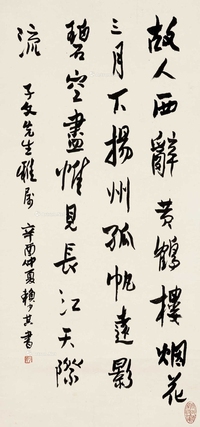 故人西辭黄鶴樓烟花
三月下揚州孤帆遠影
碧空盡惟見長江天際
流
子文先生雅属
辛酉仲夏賴少其書